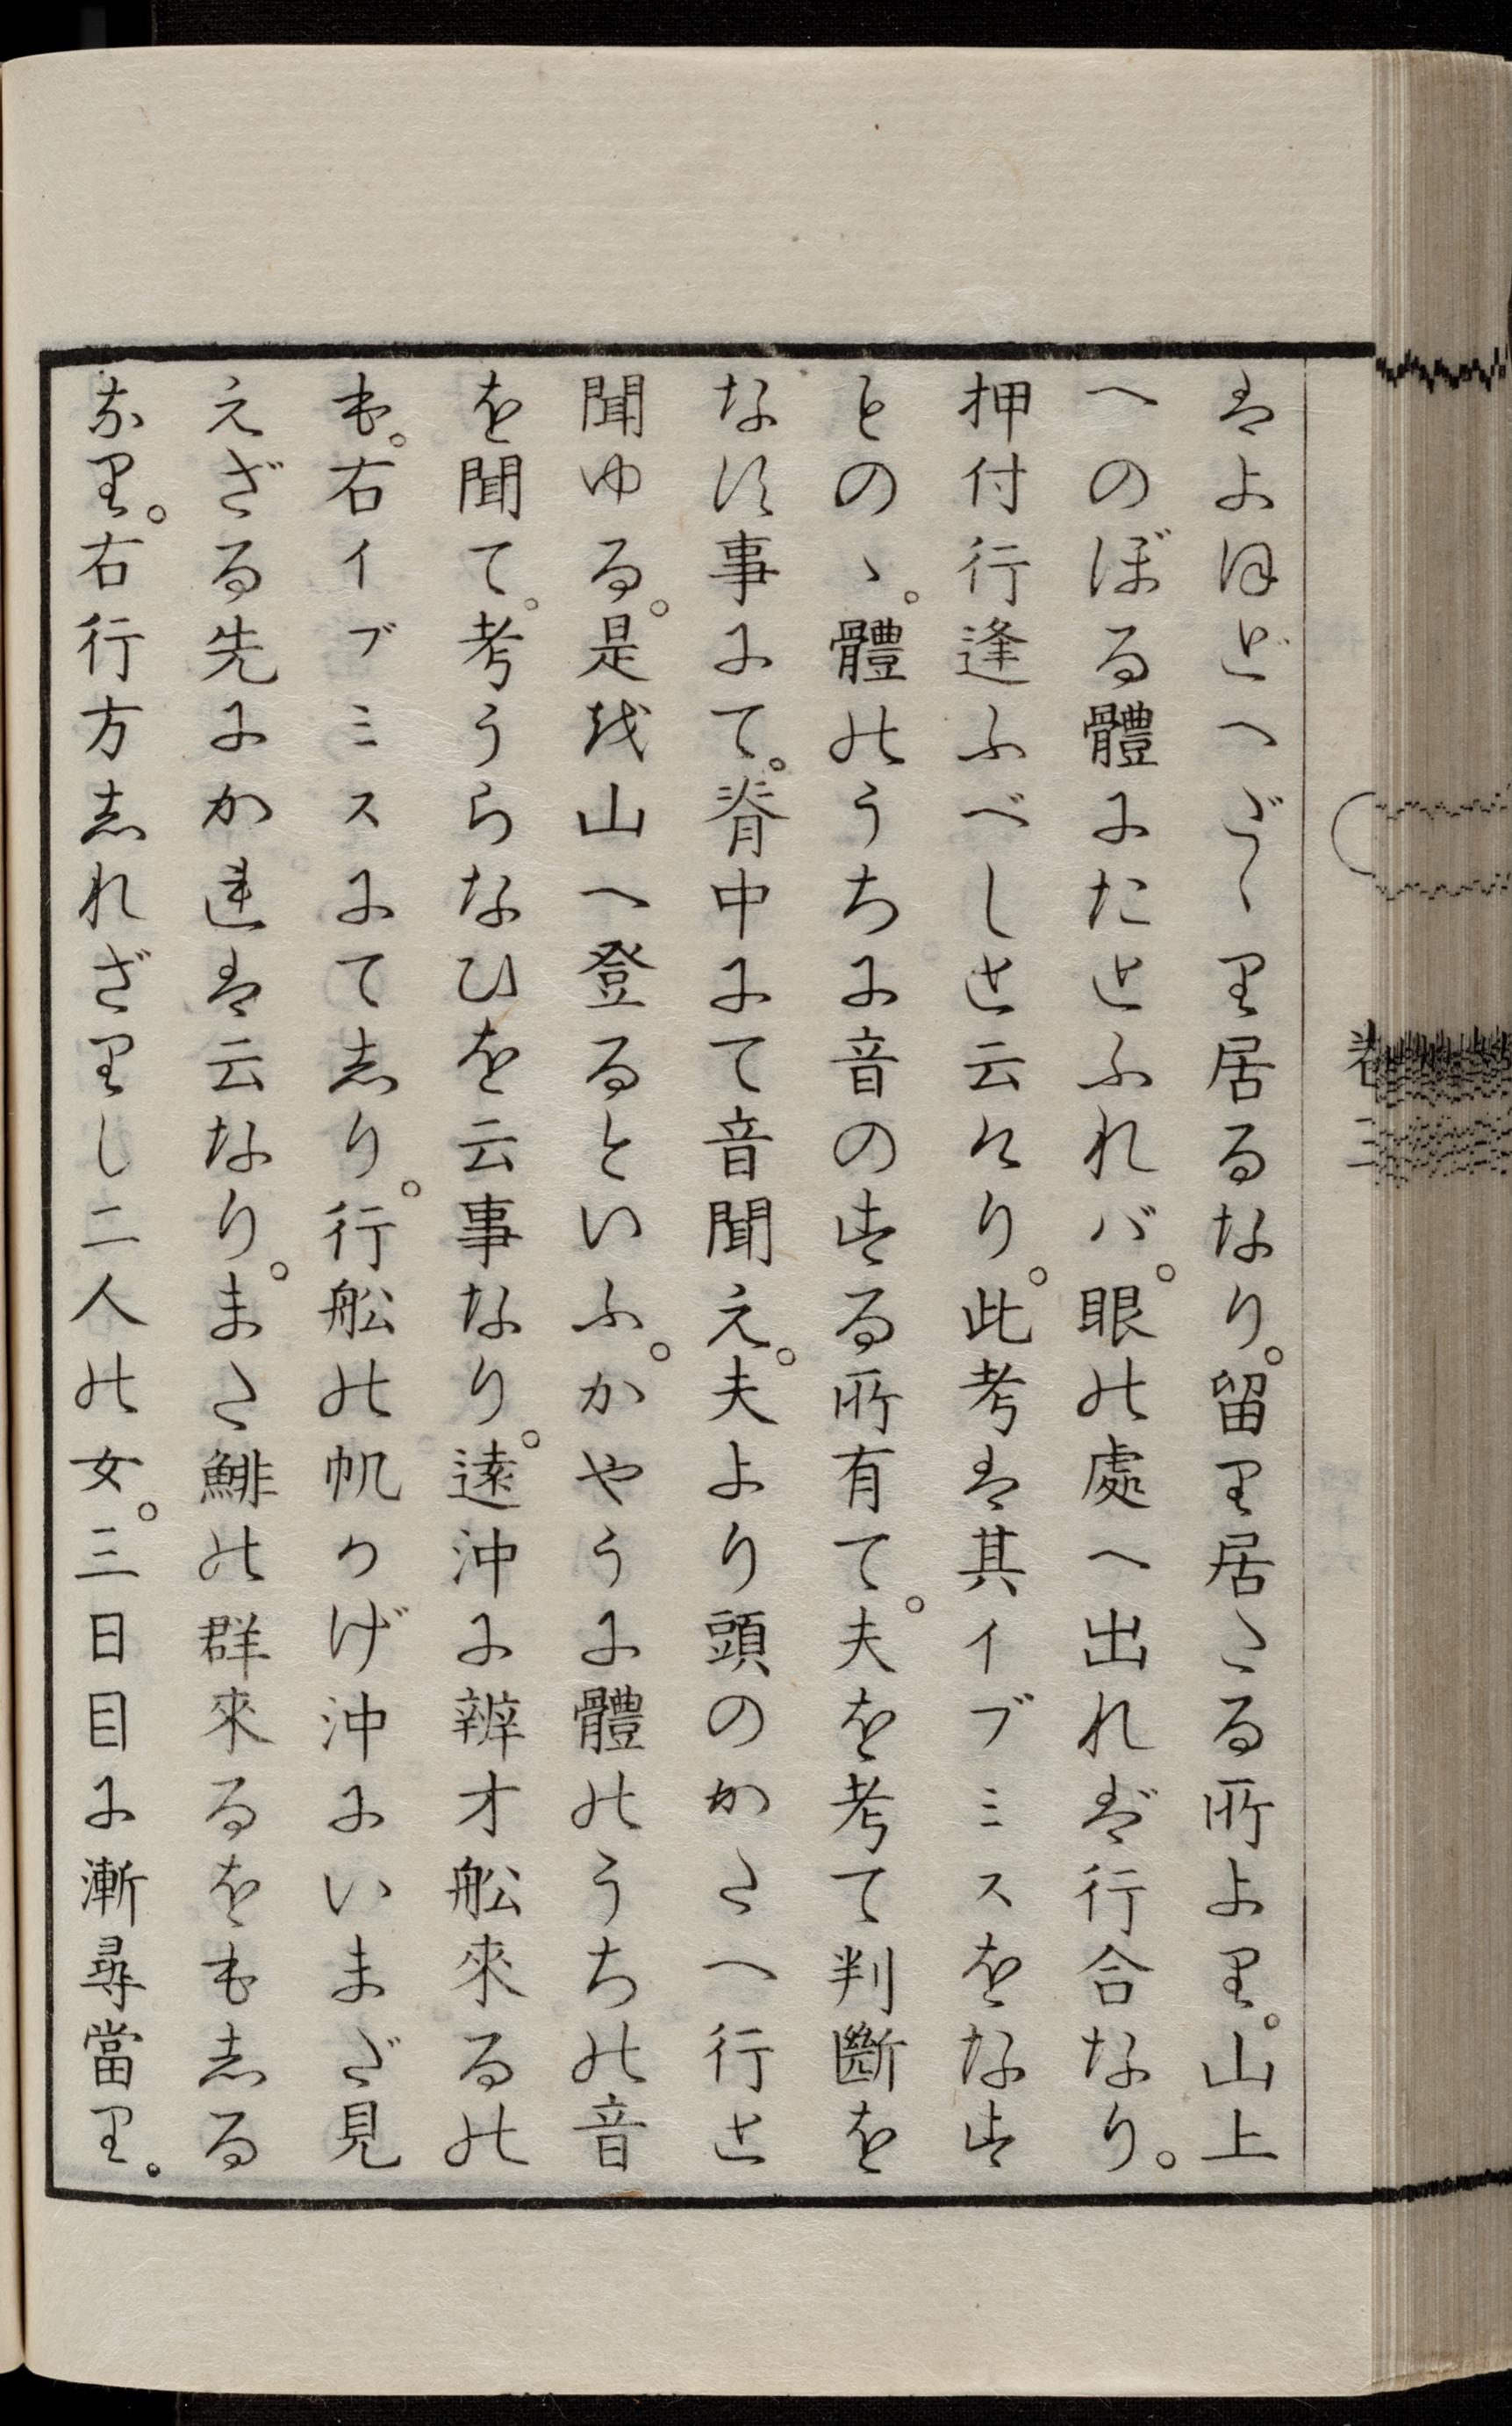 はよほどへだゝり居るなり。留り居たる所より。山上
へのぼる體にたとふれバ。眼の處へ出れば行合なり。
押付行逢ふべしと云けり。此考は其イブミスをなす
ものゝ。體のうちに音のする所有て。夫を考て判斷を
なす事にて。脊中にて音聞え。夫より頭のかたへ行と
聞ゆる。是を山へ登るといふ。かやうに體のうちの音
を聞て。考うらなひを云事なり。遠沖に辨才舩來るの
も。右イブミスにてしり。行舩の帆かげ沖にいまだ見
えざる先にかれは云なり。また鯡の群來るをもしる
なり。右行方しれざりし二人の女。三日目に漸尋當り。
巻三